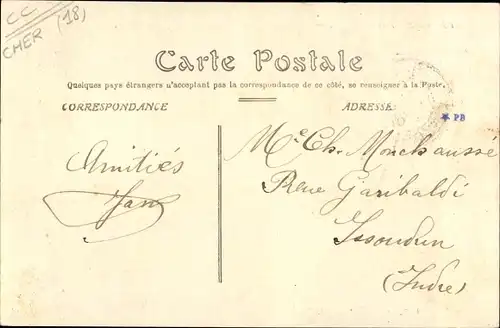 CC
CHER (18)
Carte Postale
Quelques pays étrangers n'acceptant pas la correspondance de ce côté, se renseigner à la Poste.
CORRESPONDANCE
ADRESSE
* PB
Amitiés
Mr Ch. Monchaussé
Rue Garibaldi
Issoudun
(Indre)